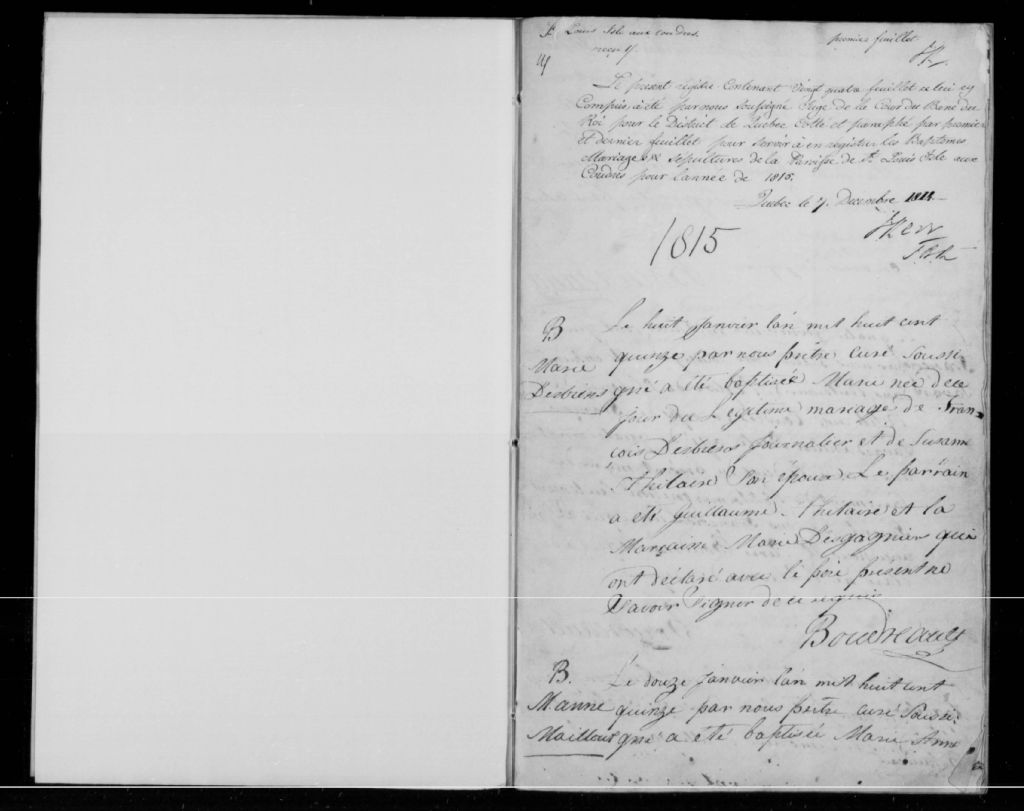 St Louis Isle aux Coudres
premier feuillet
Le present régistre Contenant Vingt quatre feuillet celui cy
Compris, a été par nous Soussigné Juge de la Cour du Banc du
Roi pour le District de Quebec Cotté et paraphé par premier
et dernier feuillet pour servir à enregistrer les Baptemes
Mariages & Sépultures de la Paroisse de St Louis Isle aux
Coudres pour l'année de 1815.
Quebec le 7. Decembre 1814
JKerr
1815
B
Marie
Desbiens
Le huit Janvier l'an mil huit cent
quinze par nous prêtre curé Soussi
gné a été baptisée Marie née de ce
jour du Legitime mariage de Fran=
cois Desbiens Journalier et de Susanne
Thilaire Son épouse Le parrain
a été Guillaume Thilaire et la
Maraine Marie Desgagniers qui
ont déclaré avec le père présent ne
Savoir Signer de ce requis
Boudreault
B.
M. anne
Mailloux
Le douze Janvier l'an mil huit cent
quinze par nous prêtre curé Soussi-
gné a été baptisée Marie Anne